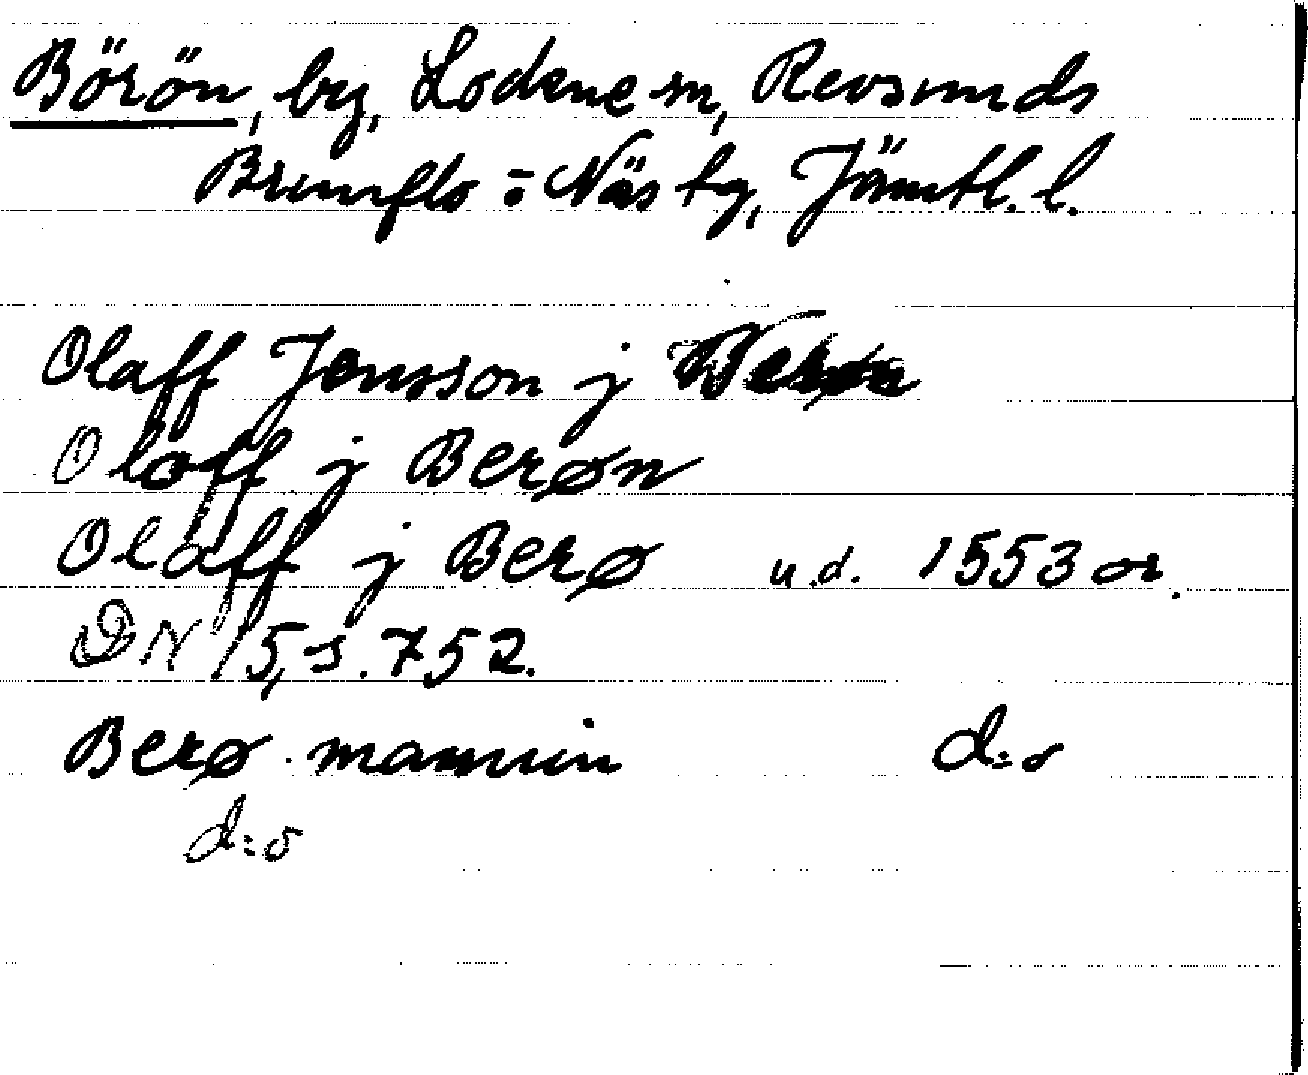 Börön, by, Lockne sn, Revsunds
Brunflo o Näs tg, Jämtl. l.
Olaff Jonsson j Werøn
Oloff j Berøn
Olaff j Berø u.d. 1553 or.
DN 15, s. 752.
Berø mannin d:o
d:o